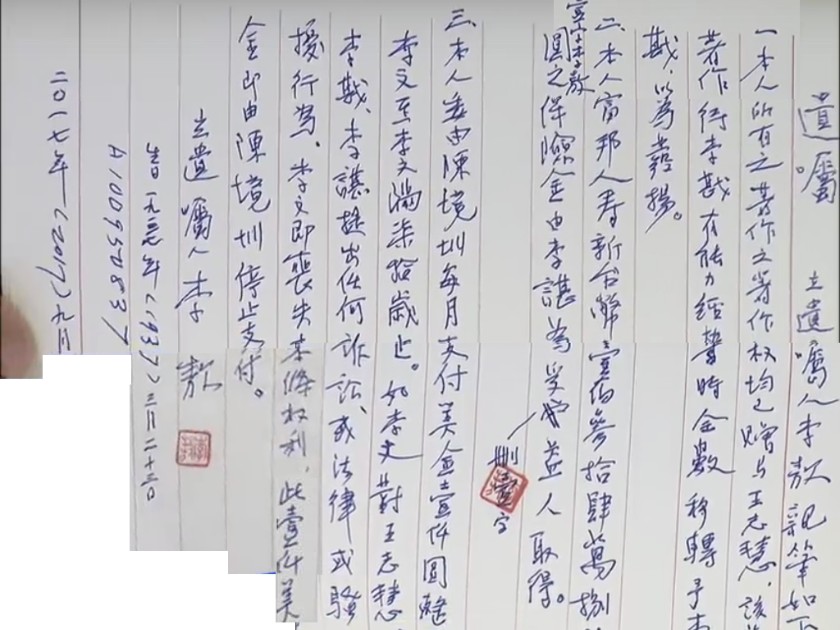 遺囑
立遺囑人李敖親筆如下
一本人所有之著作之著作权均已贈与王志慧，該
著作待李戡有能力經營時全數移轉予李
戡，以為發揚。
二本人富邦人寿新台幣壹佰參拾肆萬捌
圓之保險金由李諶為受益人取得。
刪壹字
三.本人委由陳境圳每月支付美金壹仟圓整
李文至李文滿柒拾歲止。如李文對王志慧、
李戡、李諶提出任何訴訟、或法律或騷
擾行為、李文即喪失本條权利，此壹仟美
金即由陳境圳停止支付。
立遺囑人李敖
生日一九三五年(1935)
A100950837
二〇一七年(2017)九月